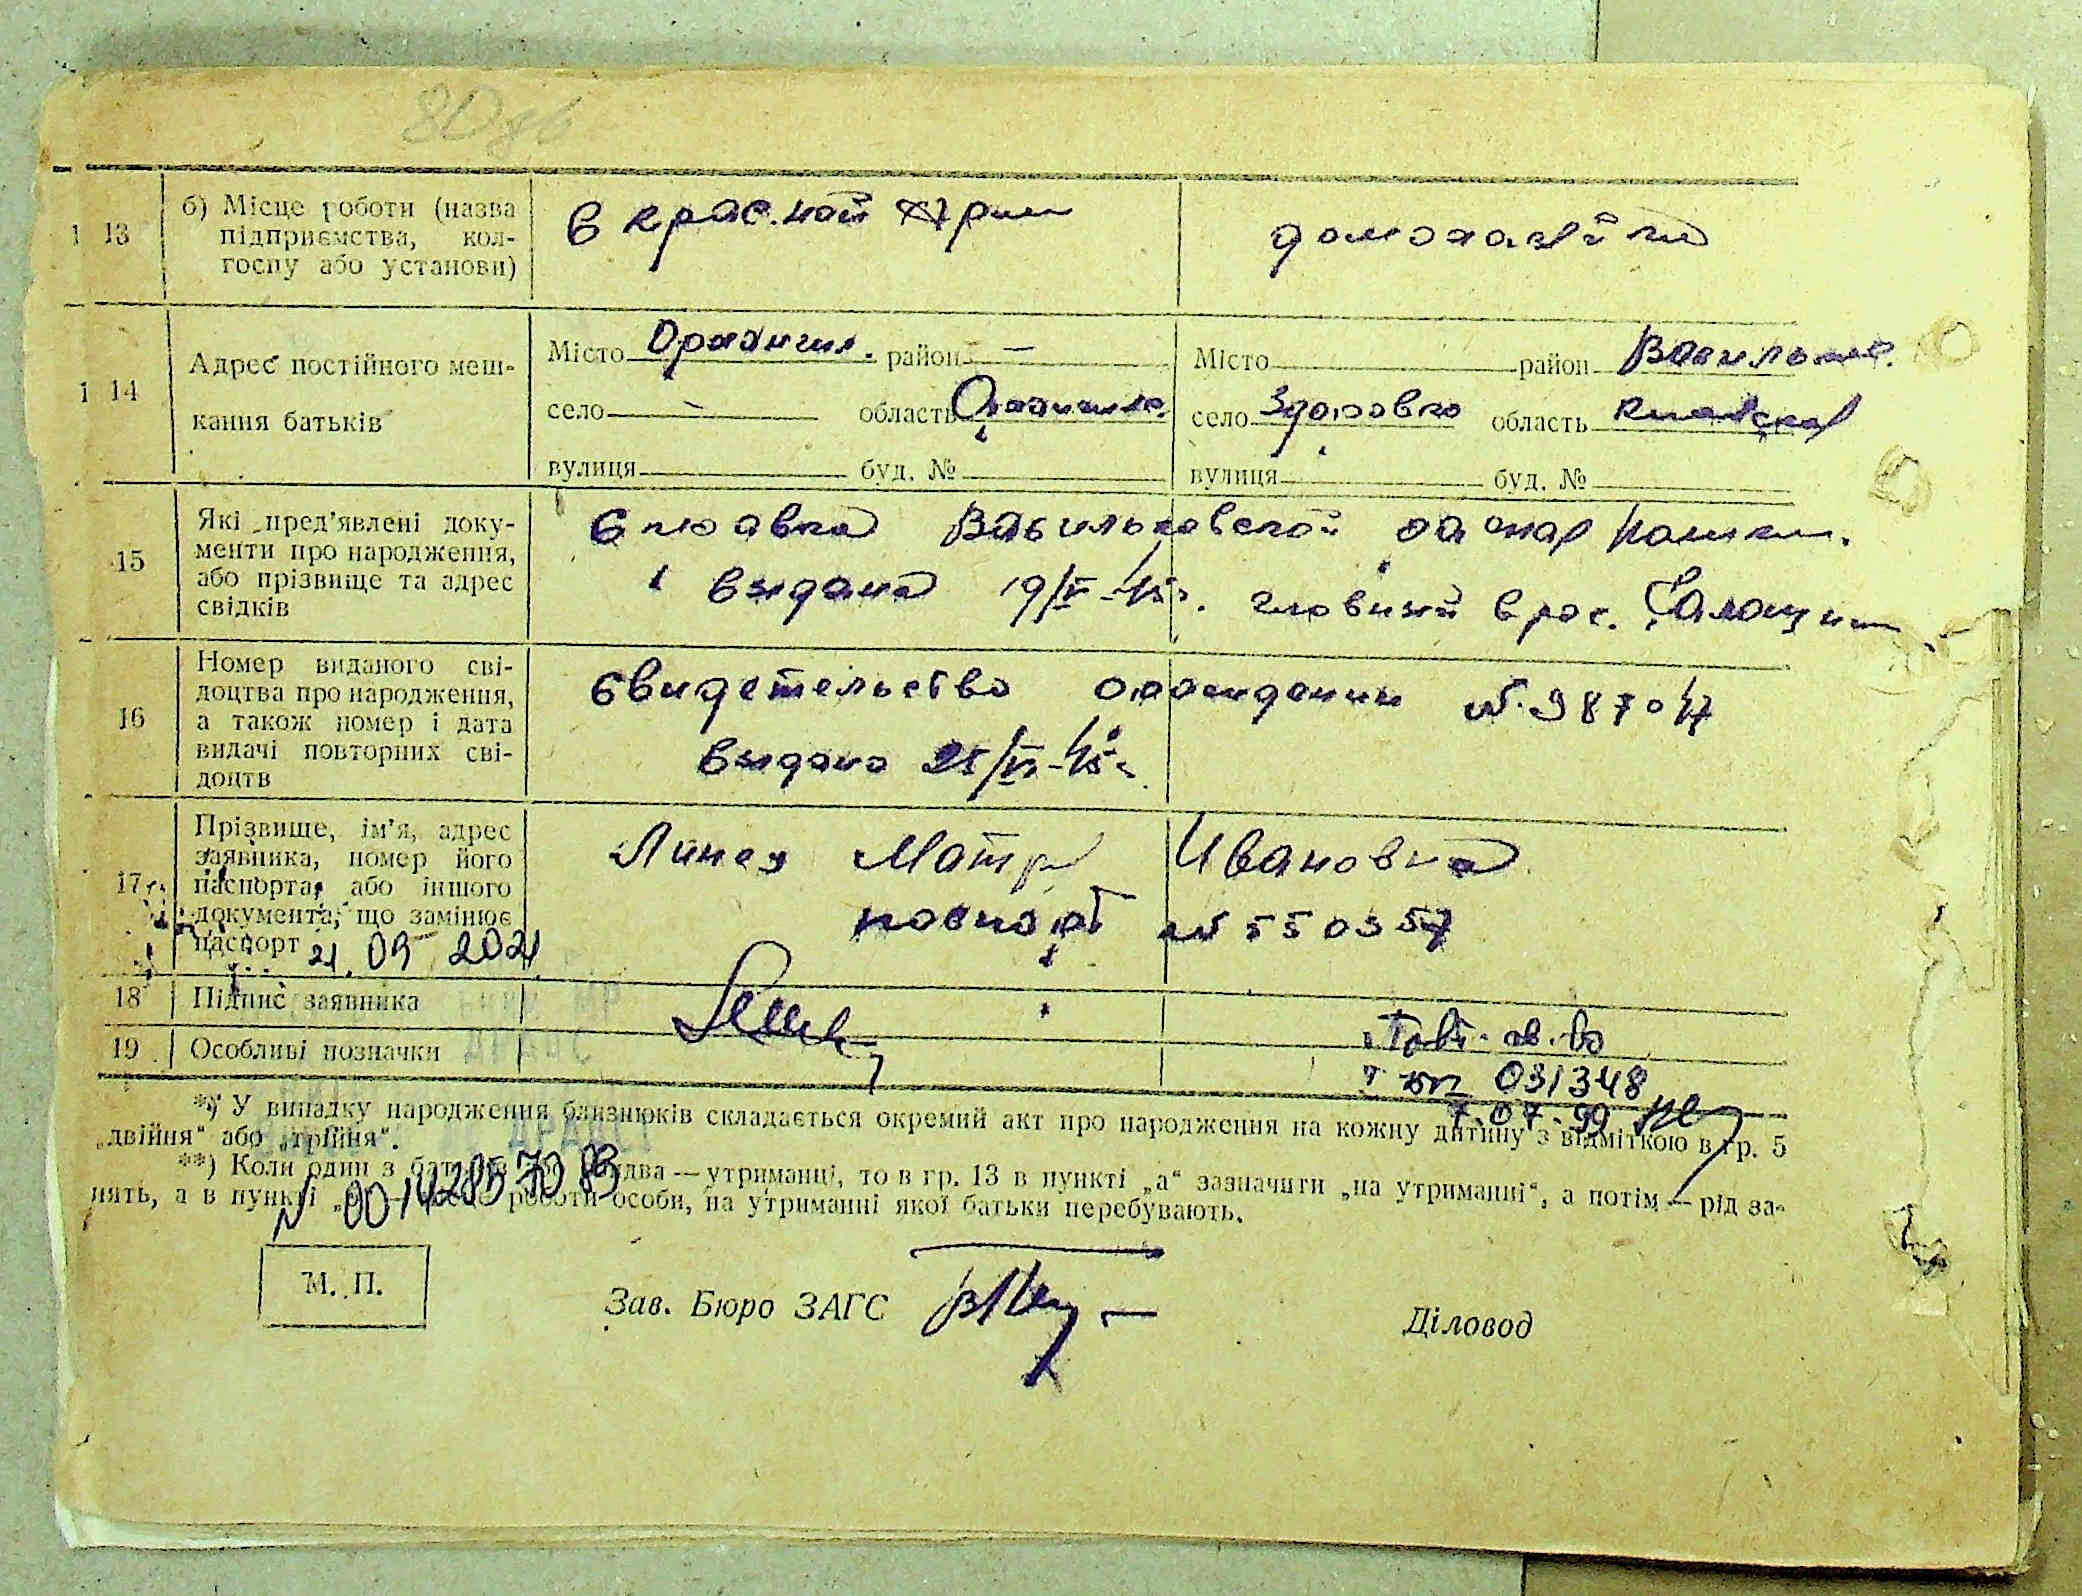 80 зв
1 13
б) Місце роботи (назва
підприємства, кол-
госпу або установи)
в красной Арми
домохазяйка
1 14
Адрес постійного меш-
кання батьків
Місто район —
село — область
вулиця буд. №
Місто район Васильк.
село Здоровка область Киевская
вулиця буд. №
15
Які пред'явлені доку-
менти про народження,
або прізвище та адрес
свідків
Справка Васильковской
выдана 19/V-45г. главный врач.
16
Номер виданого сві-
доцтва про народження,
а також номер і дата
видачі повторних сві-
доцтв
Свидетельство о рождении №. 987047
выдано 25/VI-45г.
17
Прізвище, ім'я, адрес
заявника, номер його
паспорта, або іншого
документа, що замінює
паспорт 21.05 2021
Ивановна
паспорт № 550357
18
Підпис заявника
19
Особливі позначки
Повт. св. во
031348
7.07.99
*) У випадку народження близнюків складається окремий акт про народження на кожну дитину з відміткою в гр. 5
„двійня“ або „трійня“.
**) Коли один з утриманці, то в гр. 13 в пункті „а“ зазначити „на утриманні“, а потім — рід за-
нять, а в пункті роботи особи, на утриманні якої батьки перебувають.
N 00142857089
М. П.
Зав. Бюро ЗАГС
Діловод